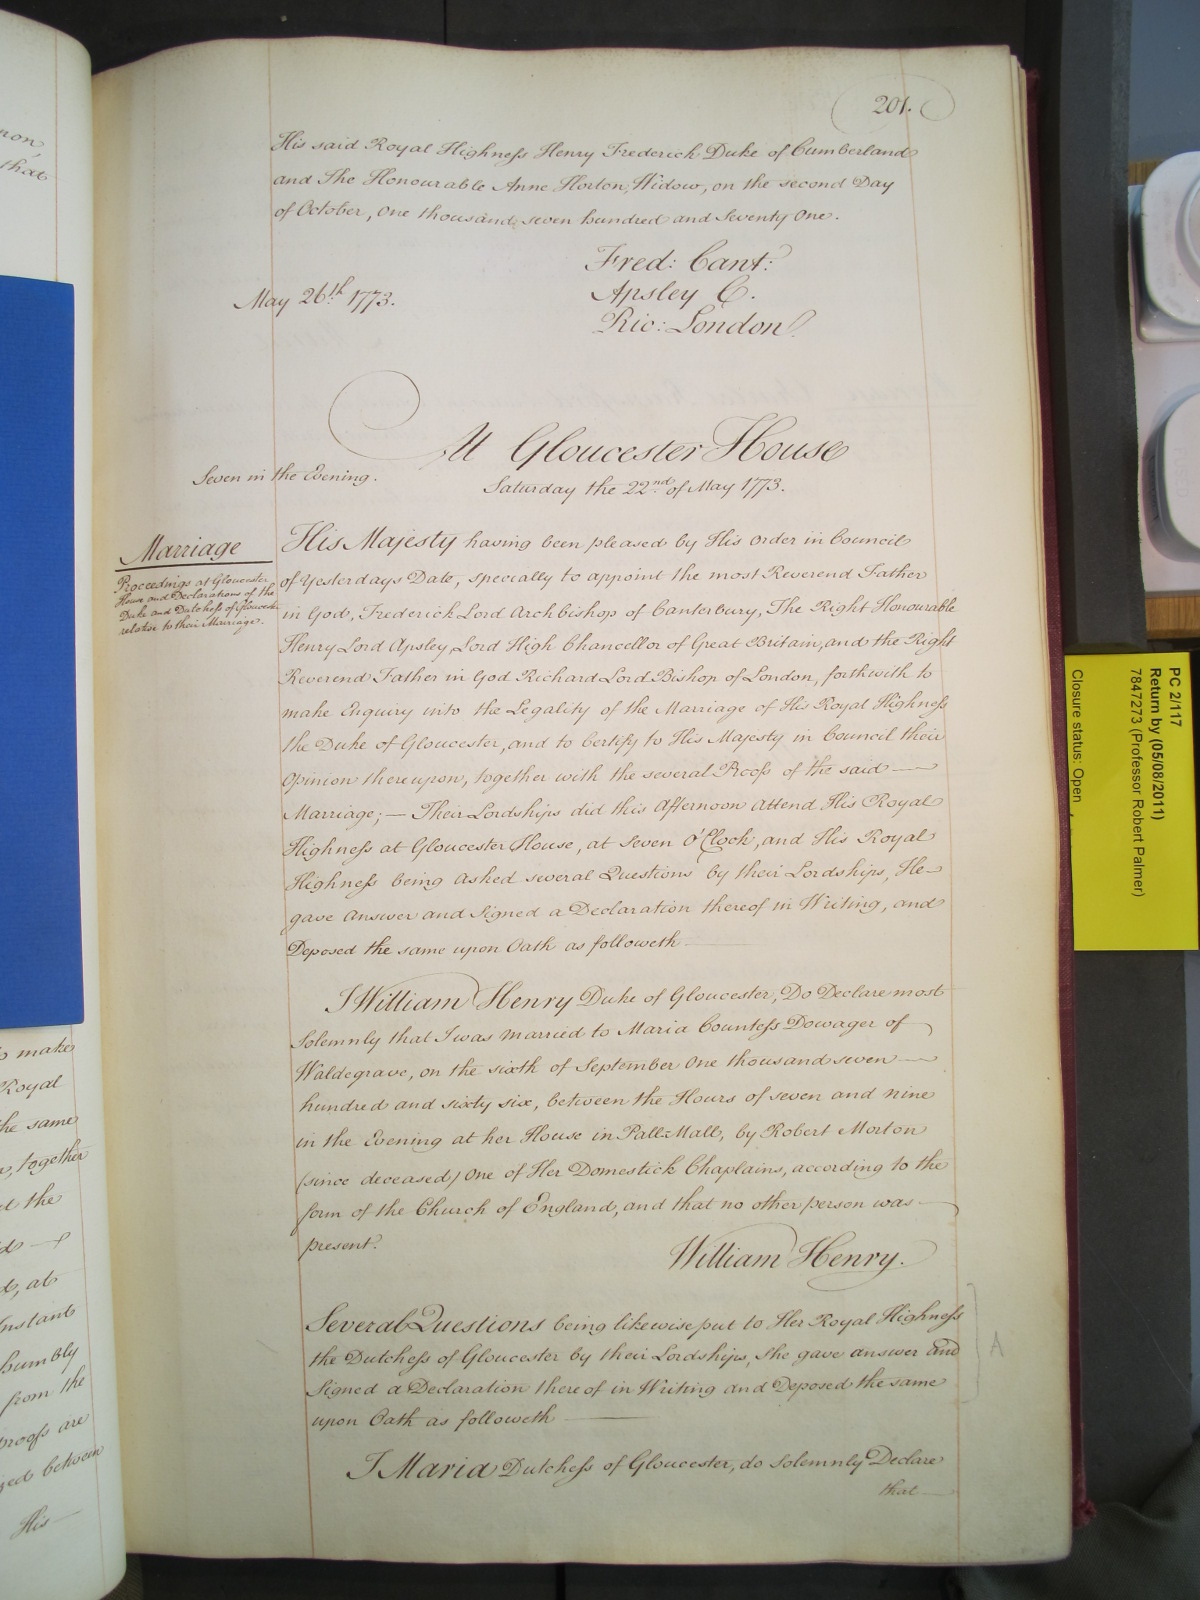 non,
that
make
Royal
the same
together
the
at
Instant
humbly
from the
proofs are
between
His
201.
His said Royal Highness Henry Frederick Duke of Cumberland
and The Honourable Anne Horton, Widow, on the second Day
of October, One thousand seven hundred and Seventy One.
Fred: Cant:
May 26th. 1773.
Apsley C.
Ric: London
At Gloucester House
Seven in the Evening.
Saturday the 22nd. of May 1773.
Marriage
Proceedings at Gloucester
House and Declarations of the
Duke and Dutchess of Gloucester
relative to their Marriage.
His Majesty having been pleased by His Order in Council
of Yesterdays Date, specially to appoint the most Reverend Father
in God, Frederick Lord Archbishop of Canterbury, The Right Honourable
Henry Lord Apsley, Lord High Chancellor of Great Britain, and the Right
Reverend Father in God Richard Lord Bishop of London, forthwith to
make Enquiry into the Legality of the Marriage of His Royal Highness
the Duke of Gloucester, and to Certify to His Majesty in Council their
Opinion thereupon, together with the several Proofs of the said
Marriage; — Their Lordships did this Afternoon attend His Royal
Highness at Gloucester House, at Seven O'Clock, and His Royal
Highness being asked several Questions by their Lordships, He
gave answer and Signed a Declaration thereof in Writing, and
Deposed the same upon Oath as followeth
I William Henry Duke of Gloucester, Do Declare most
Solemnly that I was married to Maria Countess Dowager of
Waldegrave, on the sixth of September One thousand seven
hundred and sixty six, between the Hours of seven and nine
in the Evening at her House in Pall-Mall, by Robert Morton
(since deceased) One of Her Domestick Chaplains, according to the
form of the Church of England, and that no other person was
present.
William Henry.
Several Questions being likewise put to Her Royal Highness
the Dutchess of Gloucester by their Lordships, She gave answer and
Signed a Declaration thereof in Writing and Deposed the same
upon Oath as followeth
A
I Maria Dutchess of Gloucester, do Solemnly Declare
that
PC 2/117
Return by (05/08/2011)
7847273 (Professor Robert Palmer)
Closure status: Open